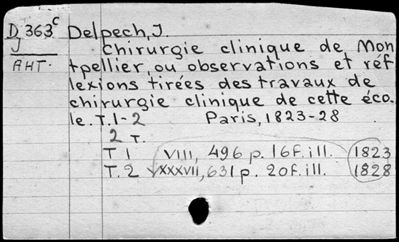 D 363c Delpech, J.
J Chirurgie clinique de Mon
AHT. tpellier, ou observations et réf
lexions tirées des travaux de
chirurgie clinique de cette éco.
le. T. 1-2 Paris, 1823-28
2 T.
T 1 VIII, 496 p. 16 f. ill. 1823
T. 2 XXXVII, 631 p. 20 f. ill. 1828